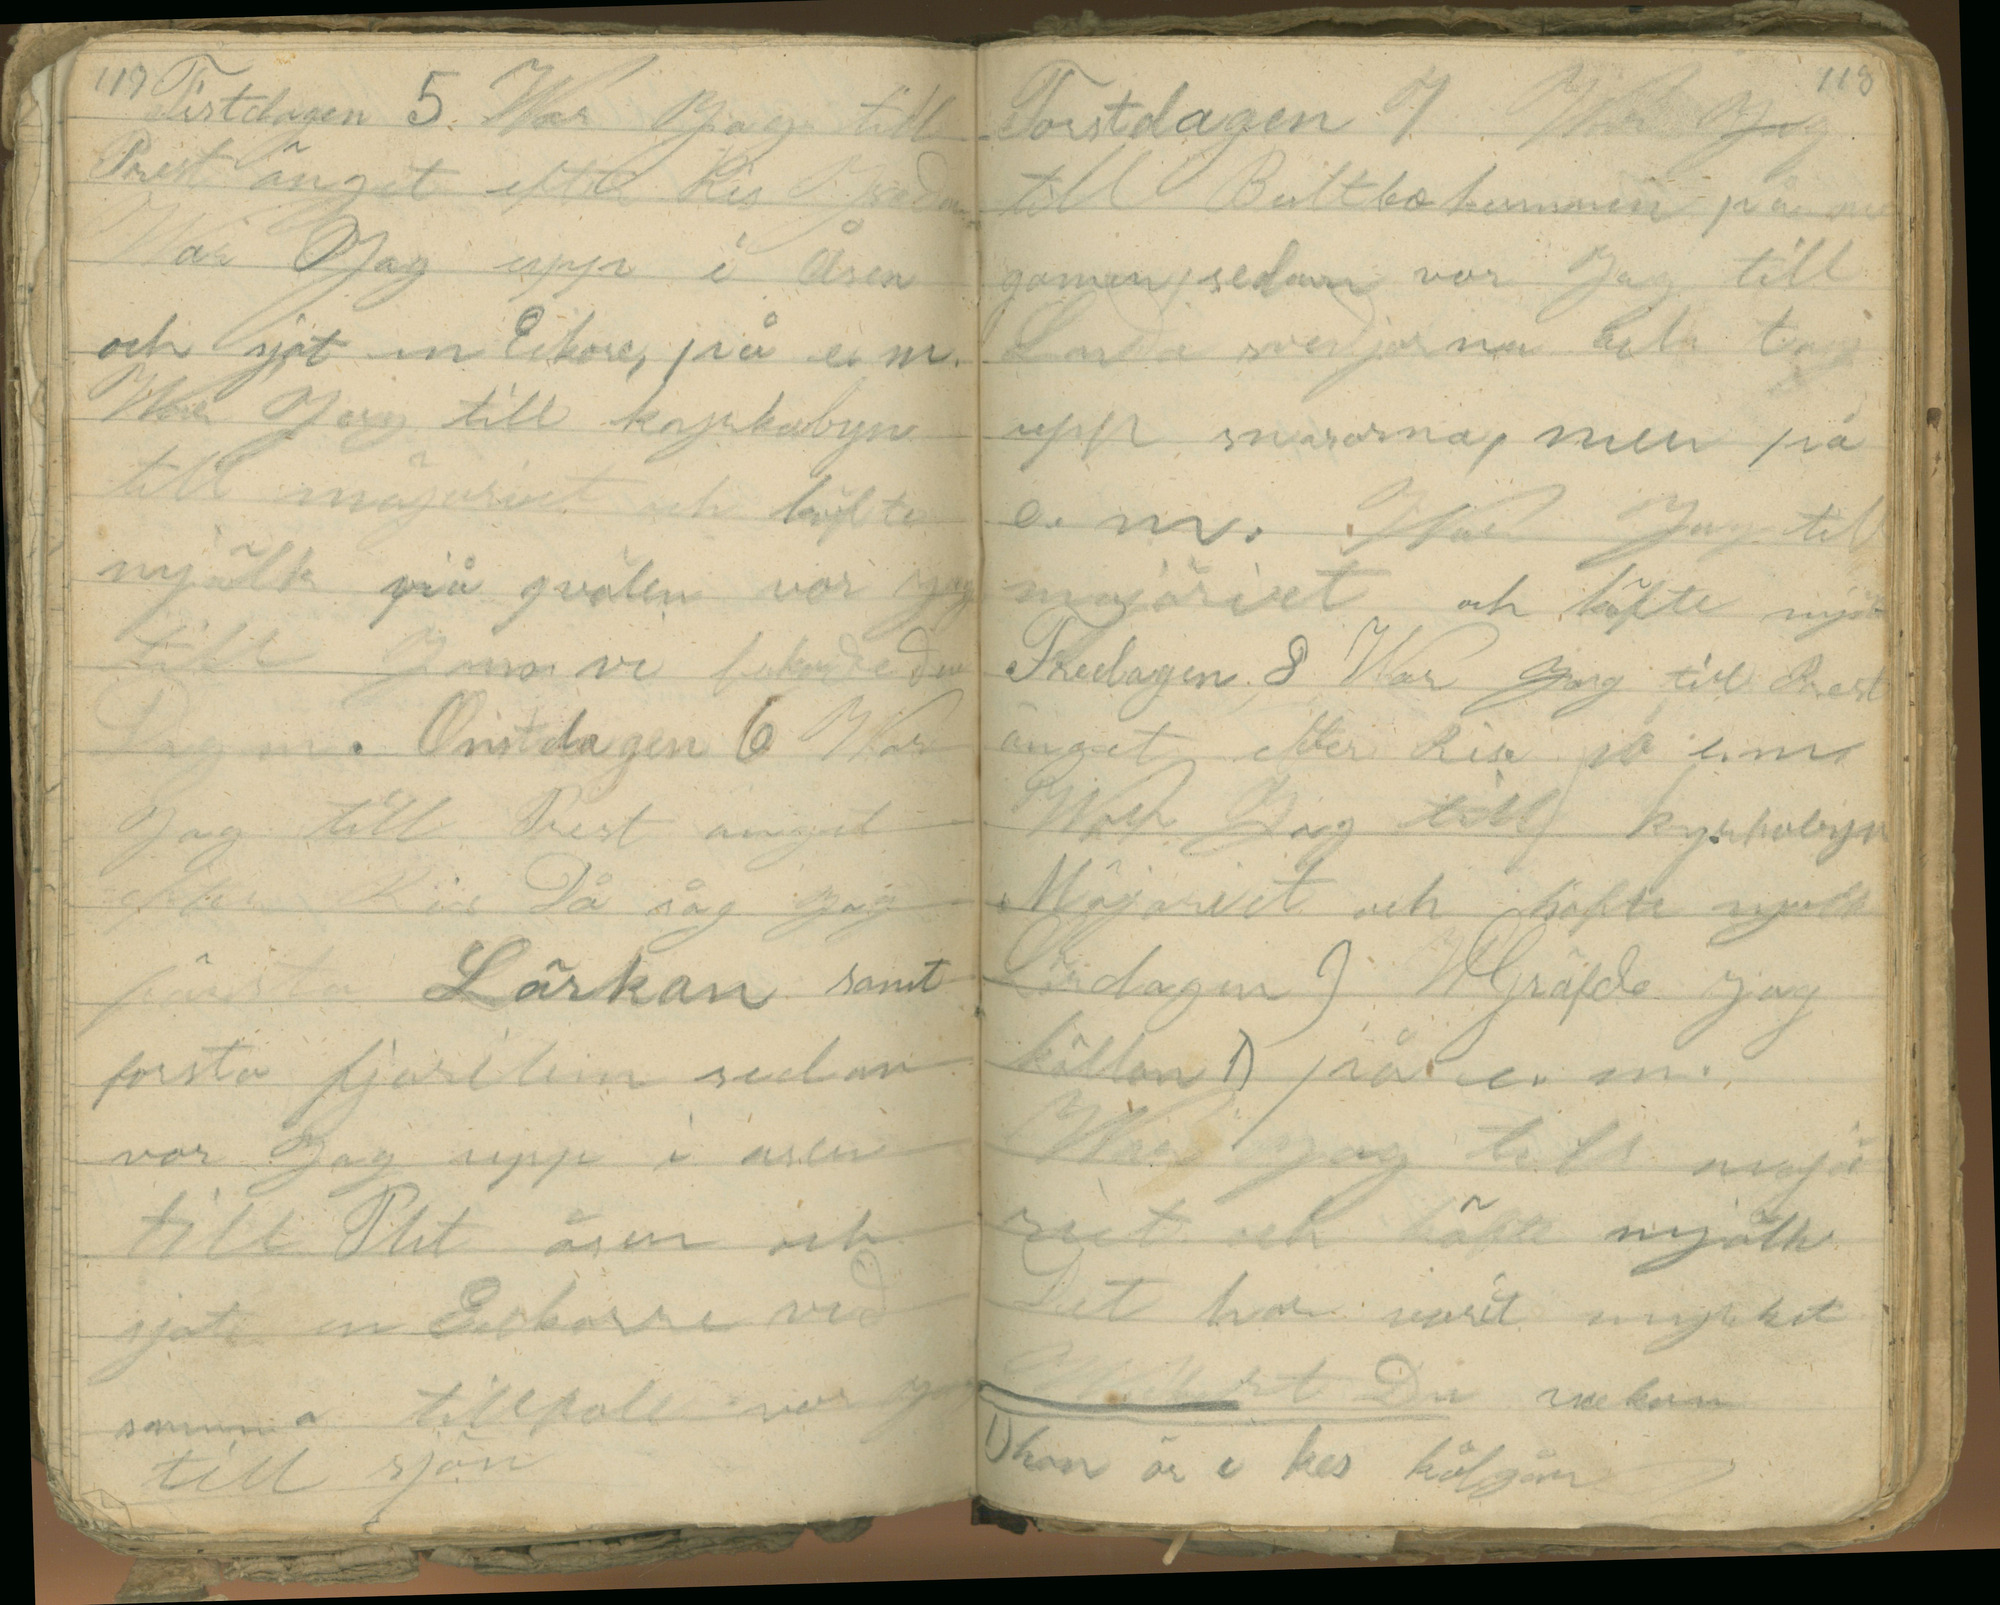 119
Tistdagen 5. War Jag till
Prest änget efter Ris Sedan
War Jag upp i Åsen
och sjöt en Eckore, på e. m.
War Jag till kyrkabyn
till mäjeriet och köfte
mjölk på qvälen var jag
till
Dagen. Onstdagen 6 War
Jag till Prest änget
efter Ris Då såg jag
första Lärkan samt
forsta fjärilen sedan
var Jag upp i åsen
till Plit åsen och
sjöt en Eckorre vid
samma tillfäle var jag
till sjön
118
Torstdagen 7 War Jag
till på mor
gonen, sedan var Jag till
och tog
upp snarorna, men på
e. m. War Jag till
majäriet och köfte mjölk
Fredagen 8 War Jag till Prest
änget efter Ris på e. m.
War Jag till kyrkobyn
Mäjäriet och köfte mjölk
Lördagen 9 Gräfde jag
källan 1) på e. m.
War jag till mejä
riet och köfte mjölk
Det har varit mycket
Den veckan
1) han är i kes kölgån